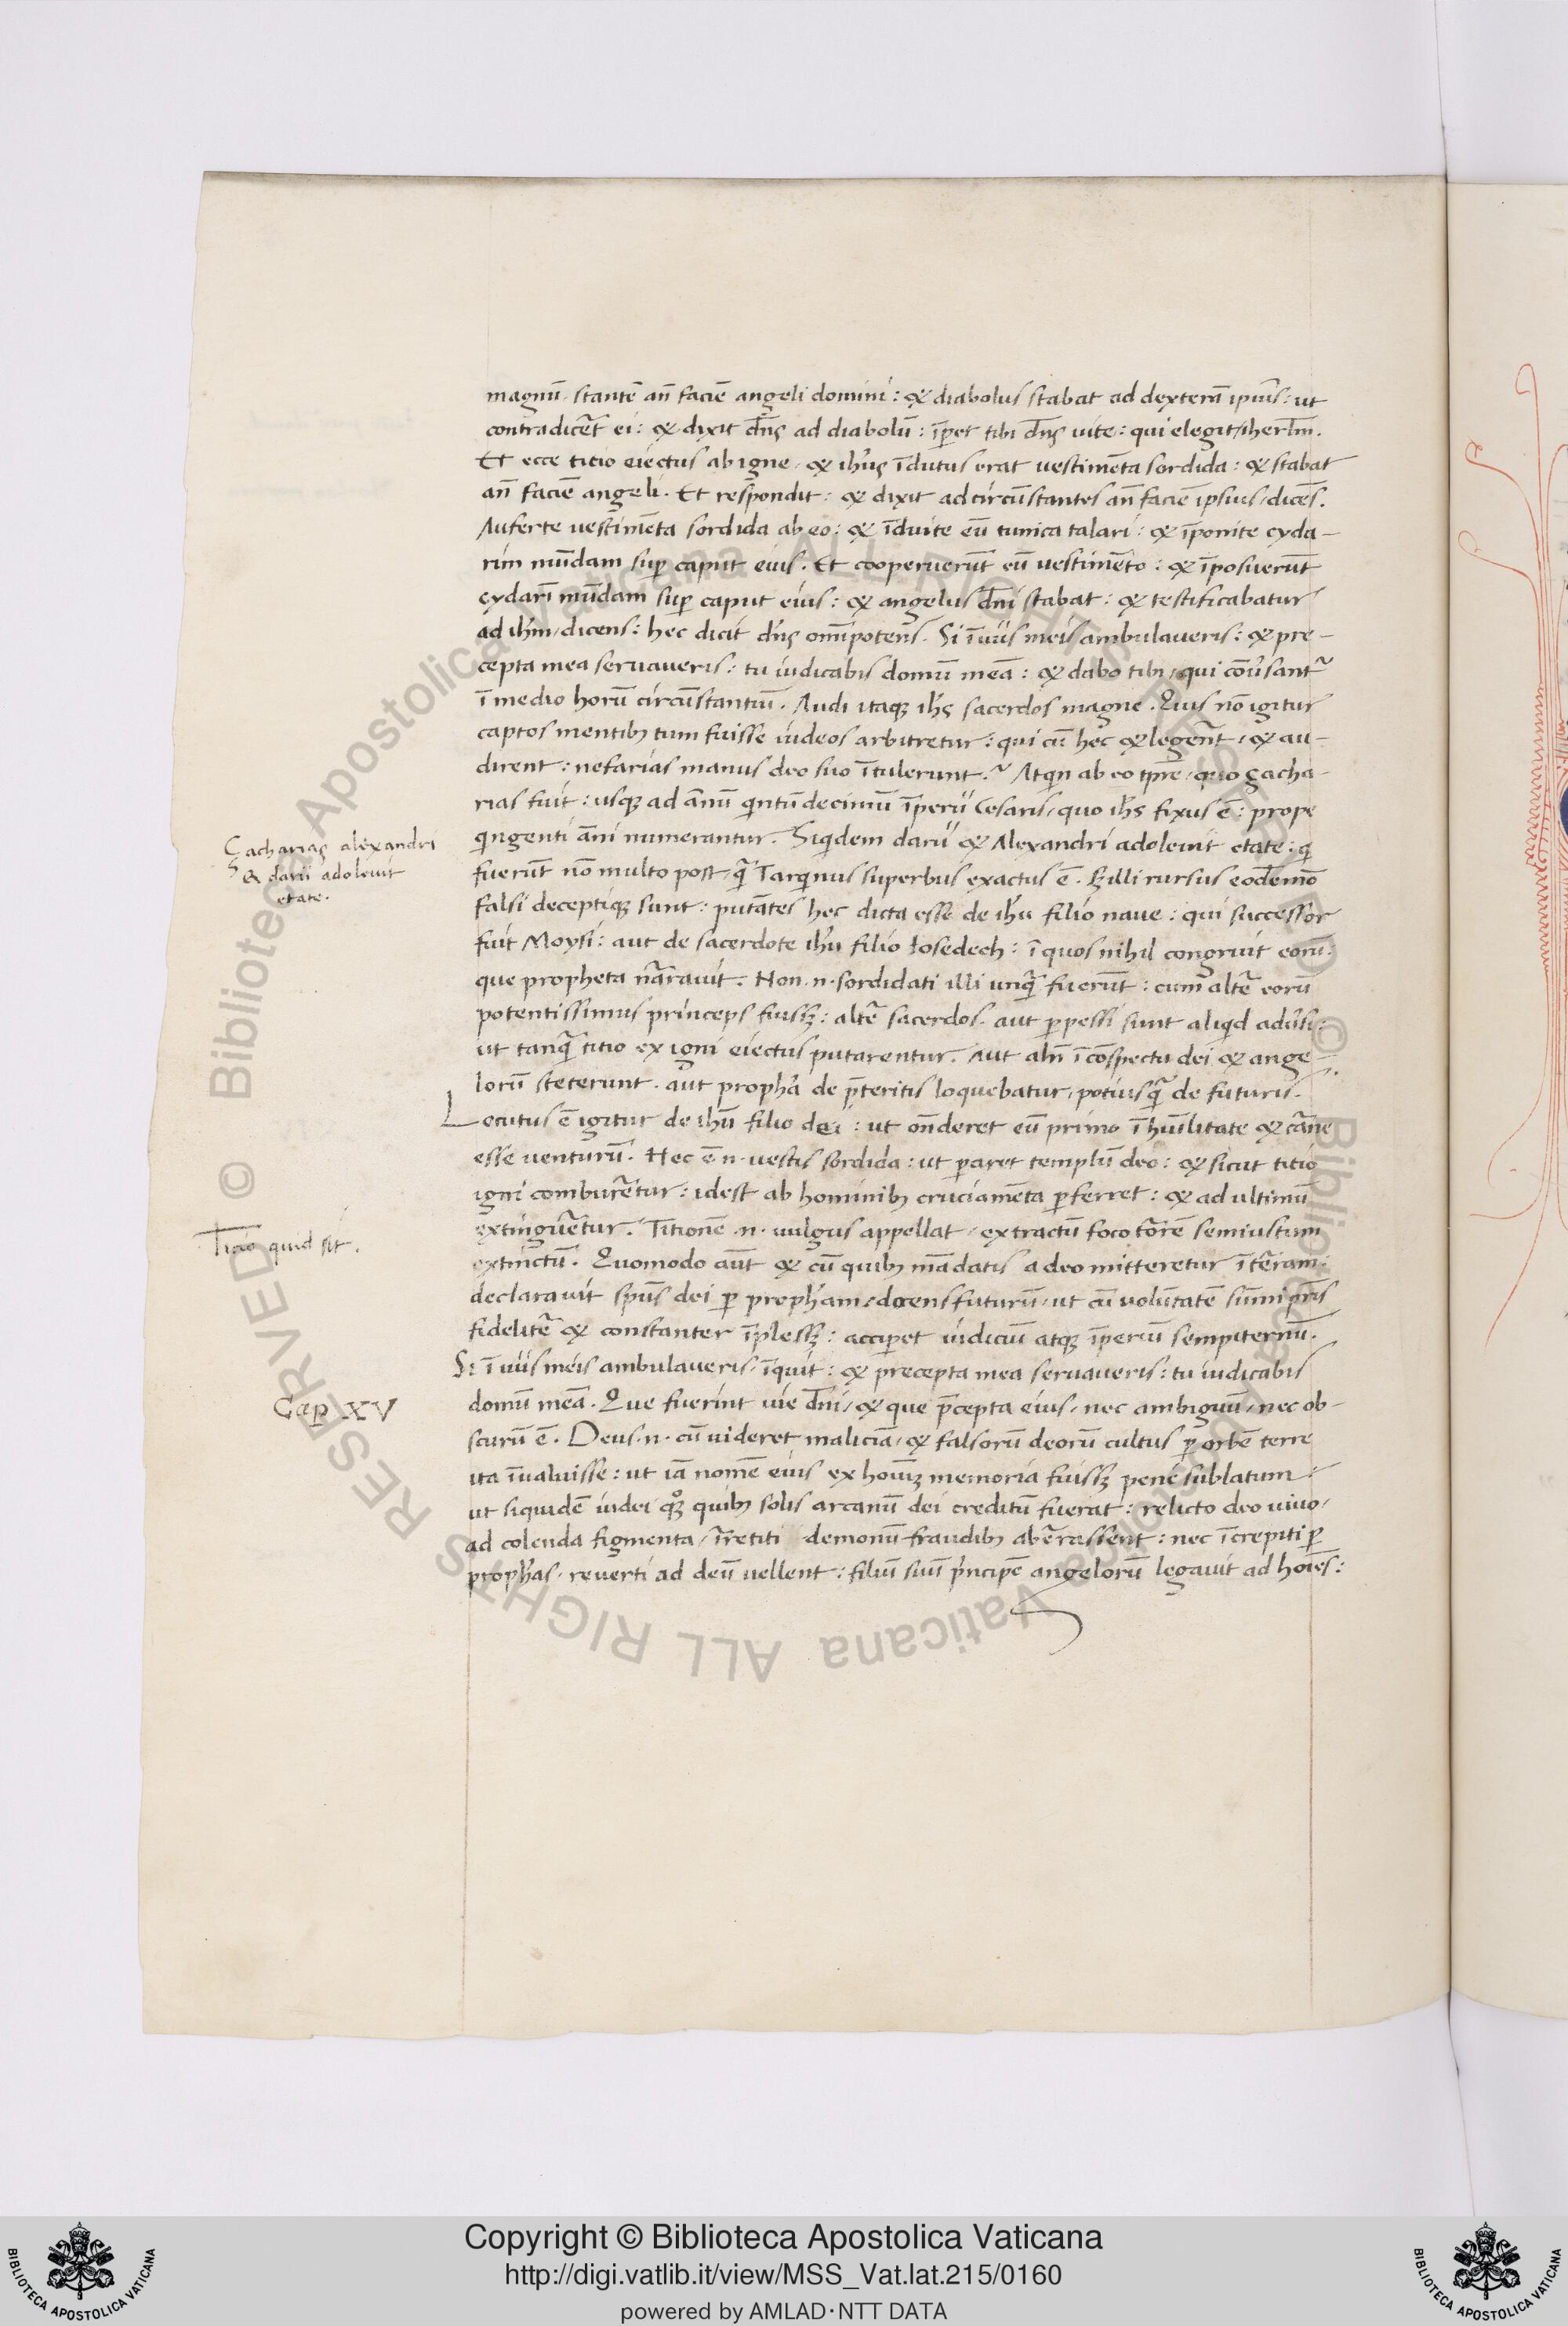 magnū stantē añ faciē angeli domini: & diabolus stabat ad dexterā ipius: ut
contradicēt ei: & dixit dn̄s ad diabolū: īp̄et tibi dn̄s uite: qui elegit iherl̄m.
Et ecce titio eiectus ab igne, & ihu̓s īdutus erat uestimēta sordida: & stabat
añ faciē angeli. Et respōndit: & dixit ad circūstantes añ faciē ipsius, dicēs.
Auferte uestimēta sordida ab eo: & īduite eū tunica talari: & īponite cyda-
rim mūdam sup̄ caput eius. Et cooperuerūt eū uestimēto: & īposuerūt
cydarī mūdam sup̄ caput eius: & angelus dn̄i stabat: & testificabatur
ad ihm̄, dicens: hec dicit dn̄s om̄ipotens. Si ī uiis meis ambulaueris: & pre-
cepta mea seruaueris: tu iudicabis domū meā: & dabo tibi, qui cōu̓santr̄
ī medio horū circūstantiū. Audi itaq; ihs̄ sacerdos magne. Quis nō igitur
captos mentib; tum fuisse iudeos arbitretur: qui cū hec & legerēt, & au-
dirent: nefarias manus deo suo ītulerunt? Atqin ab eo tp̄re, quo çacha-
rias fuit: usq; ad ānū qintū decimū īperii Cesaris, quo ihs̄ fixus ē: prope
qingenti āni numerantur. Siqidem darii & Alexandri adoleuit etate: qi
fuerūt nō multo post, q̄ Tarqinus superbus exactus ē. Eilli rursus eodēmō
falsi deceptiq; sunt: putātes hec dicta esse de ihu̓ filio naue: qui successor
fuit Moysi: aut de sacerdote ihu̓ filio Iosedech: ī quos nihil congruit eorū.
que propheta nārauit. Non .n. sordidati illi unq̄ fuerūt: cum altē eorū
potentissimus princeps fuiss;: altē sacerdos. aut p̱pessi sunt aliqd adu̓si:
ut tanq̄ titio ex igni eiectus putarentur. Aut aln̄ ī cōspectu dei & ange-
lorū steterunt. aut proph̓a de p̄teritis loquebatur, potiusq̄ de futuris.
Lecutus ē igitur de ihū filio dei: ut on̄deret eū primo ī humilitate & cārne
esse uenturū. Hec ē .n. uestis sordida: ut p̱aret templū deo: & sicut titio
igni comburētur: idest ab hominib; cruciamēta p̱ferret: & ad ultimū
extinguētur. Titionē .n. uulgus appellat, extractū foco tōrrē semiustum
extinctū. Quomodo aūt & cū quib; mādatis a deo mitteretur ī tēram.
declarauit sp̄us dei p̱ proph̓am, docens futurū, ut cū uolūtatē summi pr̄is
fidelitē & constanter īpless;: accip̱et iudiciū atq; īperiū sempiternū.
Si ī uiis meis ambulaueris, īquit: & precepta mea seruaueris: tu iudicabis
domū meā. Que fuerint uie dn̄i, & que p̄cepta eius, nec ambiguū, nec ob-
scurū ē. Deus .n. cū uideret maliciā, & falsorū deorū cultus p̱ orbē terre
ita īualuisse: ut iā nomē eius ex hoīu; memoria fuiss; pene sublatum:
ut siquidē iudei qq; quib; solis arcanū dei creditū fuerat: relicto deo uiuo,
ad colenda figmenta, īretiti demonū fraudib; abērassent: nec īcrepiti p̱
proph̓as, reuerti ad deū uellent: filiū suū principē angelorū legauit ad hoīes:
Çacharias alexandri
& darii adoleuit
etate.
Ticio quid sit.
Cap XV
© Biblioteca Apostolica Vaticana ALL RIGHTS RESERVED
© Biblioteca Apostolica Vaticana ALL RIGHTS RESERVED
Copyright © Biblioteca Apostolica Vaticana
http://digi.vatlib.it/view/MSS_Vat.lat.215/0160
powered by AMLAD·NTT DATA
BIBLIOTECA APOSTOLICA VATICANA
BIBLIOTECA APOSTOLICA VATICANA